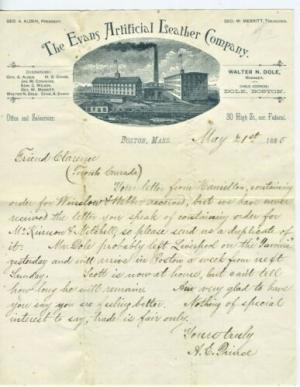 GEO. A. ALDEN, PRESIDENT.
GEO. W. MERRITT, TREASURER.
The Evans Artificial Leather Company.
DIRECTORS:
GEO. A. ALDEN,
WALTER N. DOLE,
MANAGER.
CABLE ADDRESS:
DOLE, BOSTON.
Office and Salesroom:
30 High St., cor. Federal.
BOSTON, MASS. May 21st 188
Friend Clarence
(Toronto Canada)
Your letter from Hamilton, containing
order for Winslow & received, but we have never
received the letter you speak of containing order for
McKinnon & Mitchell, so please send us a duplicate of
it. Mr. Dole probably left Liverpool on the
yesterday and will arrive in Boston a week from next
Sunday. Scott is now at home, but can't tell
how long he will remain. Am very glad to have
you say you are feeling better. Nothing of special
interest to say, trade is fair only.
Yours truly
A. E.